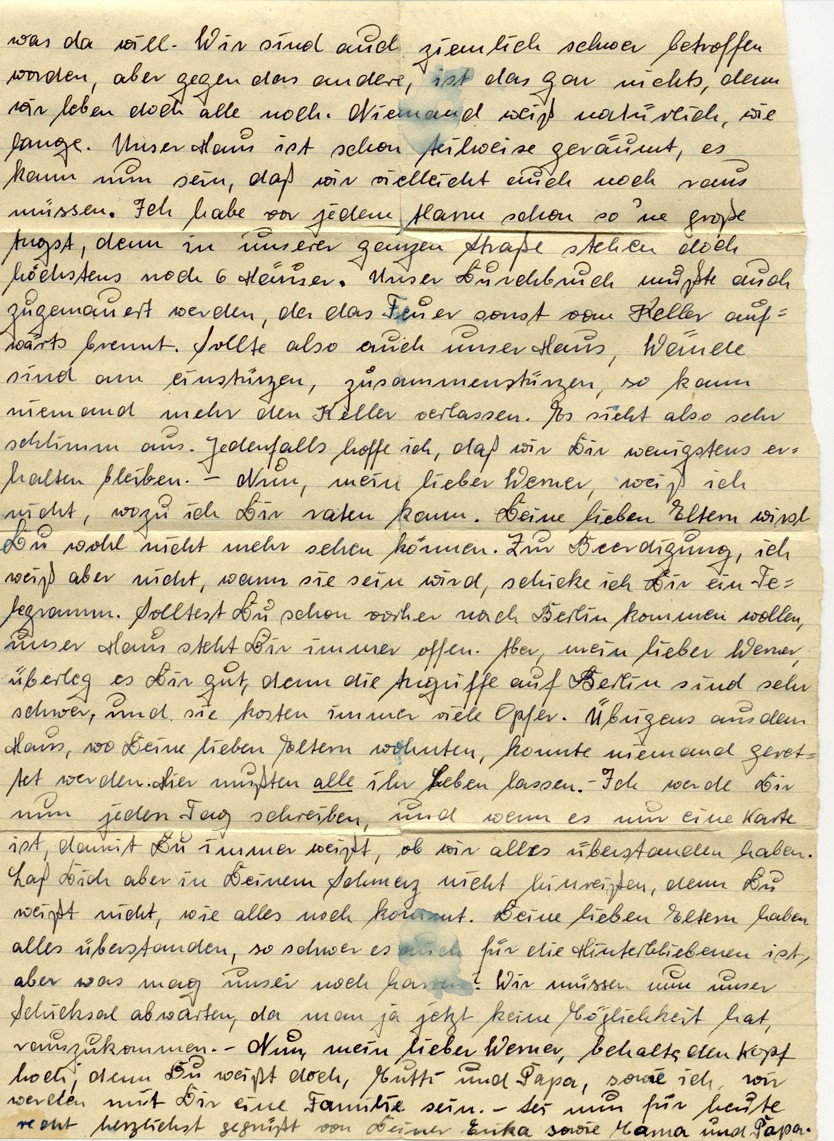 was da will. Wir sind auch ziemlich schwer betroffen
worden, aber gegen das andere, ist das gar nichts, denn
wir leben doch alle noch. Niemand weiß natürlich, wie
lange. Unser Haus ist schon teilweise geräumt, es
kann nun sein, daß wir vielleicht auch noch raus
müssen. Ich habe vor jedem Alarm schon so 'ne große
Angst, denn in unserer ganzen Straße stehen doch
höchstens noch 6 Häuser. Unser Durchbruch mußte auch
zugemauert werden, da das Feuer sonst vom Keller auf=
wärts brennt. Sollte also auch unser Haus, Wände
sind am einstürzen, zusammenstürzen, so kann
niemand mehr den Keller verlassen. Es sieht also sehr
schlimm aus. Jedenfalls hoffe ich, daß wir Dir wenigstens er=
halten bleiben. – Nun, mein lieber Werner, weiß ich
nicht, wozu ich Dir raten kann. Deine lieben Eltern wirst
Du wohl nicht mehr sehen können. Zur Beerdigung, ich
weiß aber nicht, wann sie sein wird, schicke ich Dir ein Te=
legramm. Solltest Du schon vorher nach Berlin kommen wollen,
unser Haus steht Dir immer offen. Aber, mein lieber Werner,
überleg es Dir gut, denn die Angriffe auf Berlin sind sehr
schwer, und sie kosten immer viele Opfer. Übrigens aus dem
Haus, wo Deine lieben Eltern wohnten, konnte niemand geret=
tet werden. Hier mußten alle ihr Leben lassen. – Ich werde Dir
nun jeden Tag schreiben, und wenn es nur eine Karte
ist, damit Du immer weißt, ob wir alles überstanden haben.
Laß Dich aber in Deinem Schmerz nicht hinreißen, denn Du
weißt nicht, wie alles noch kommt. Deine lieben Eltern haben
alles überstanden, so schwer es auch für die Hinterbliebenen ist,
aber was mag unser noch harren? Wir müssen nun unser
Schicksal abwarten, da man ja jetzt keine Möglichkeit hat,
rauszukommen. – Nun, mein lieber Werner, behalte den Kopf
hoch, denn Du weißt doch, Mutti und Papa, sowie ich, wir
werden mit Dir eine Familie sein. – Sei nun für heute
recht herzlichst gegrüßt von Deiner Erika sowie Mama und Papa.